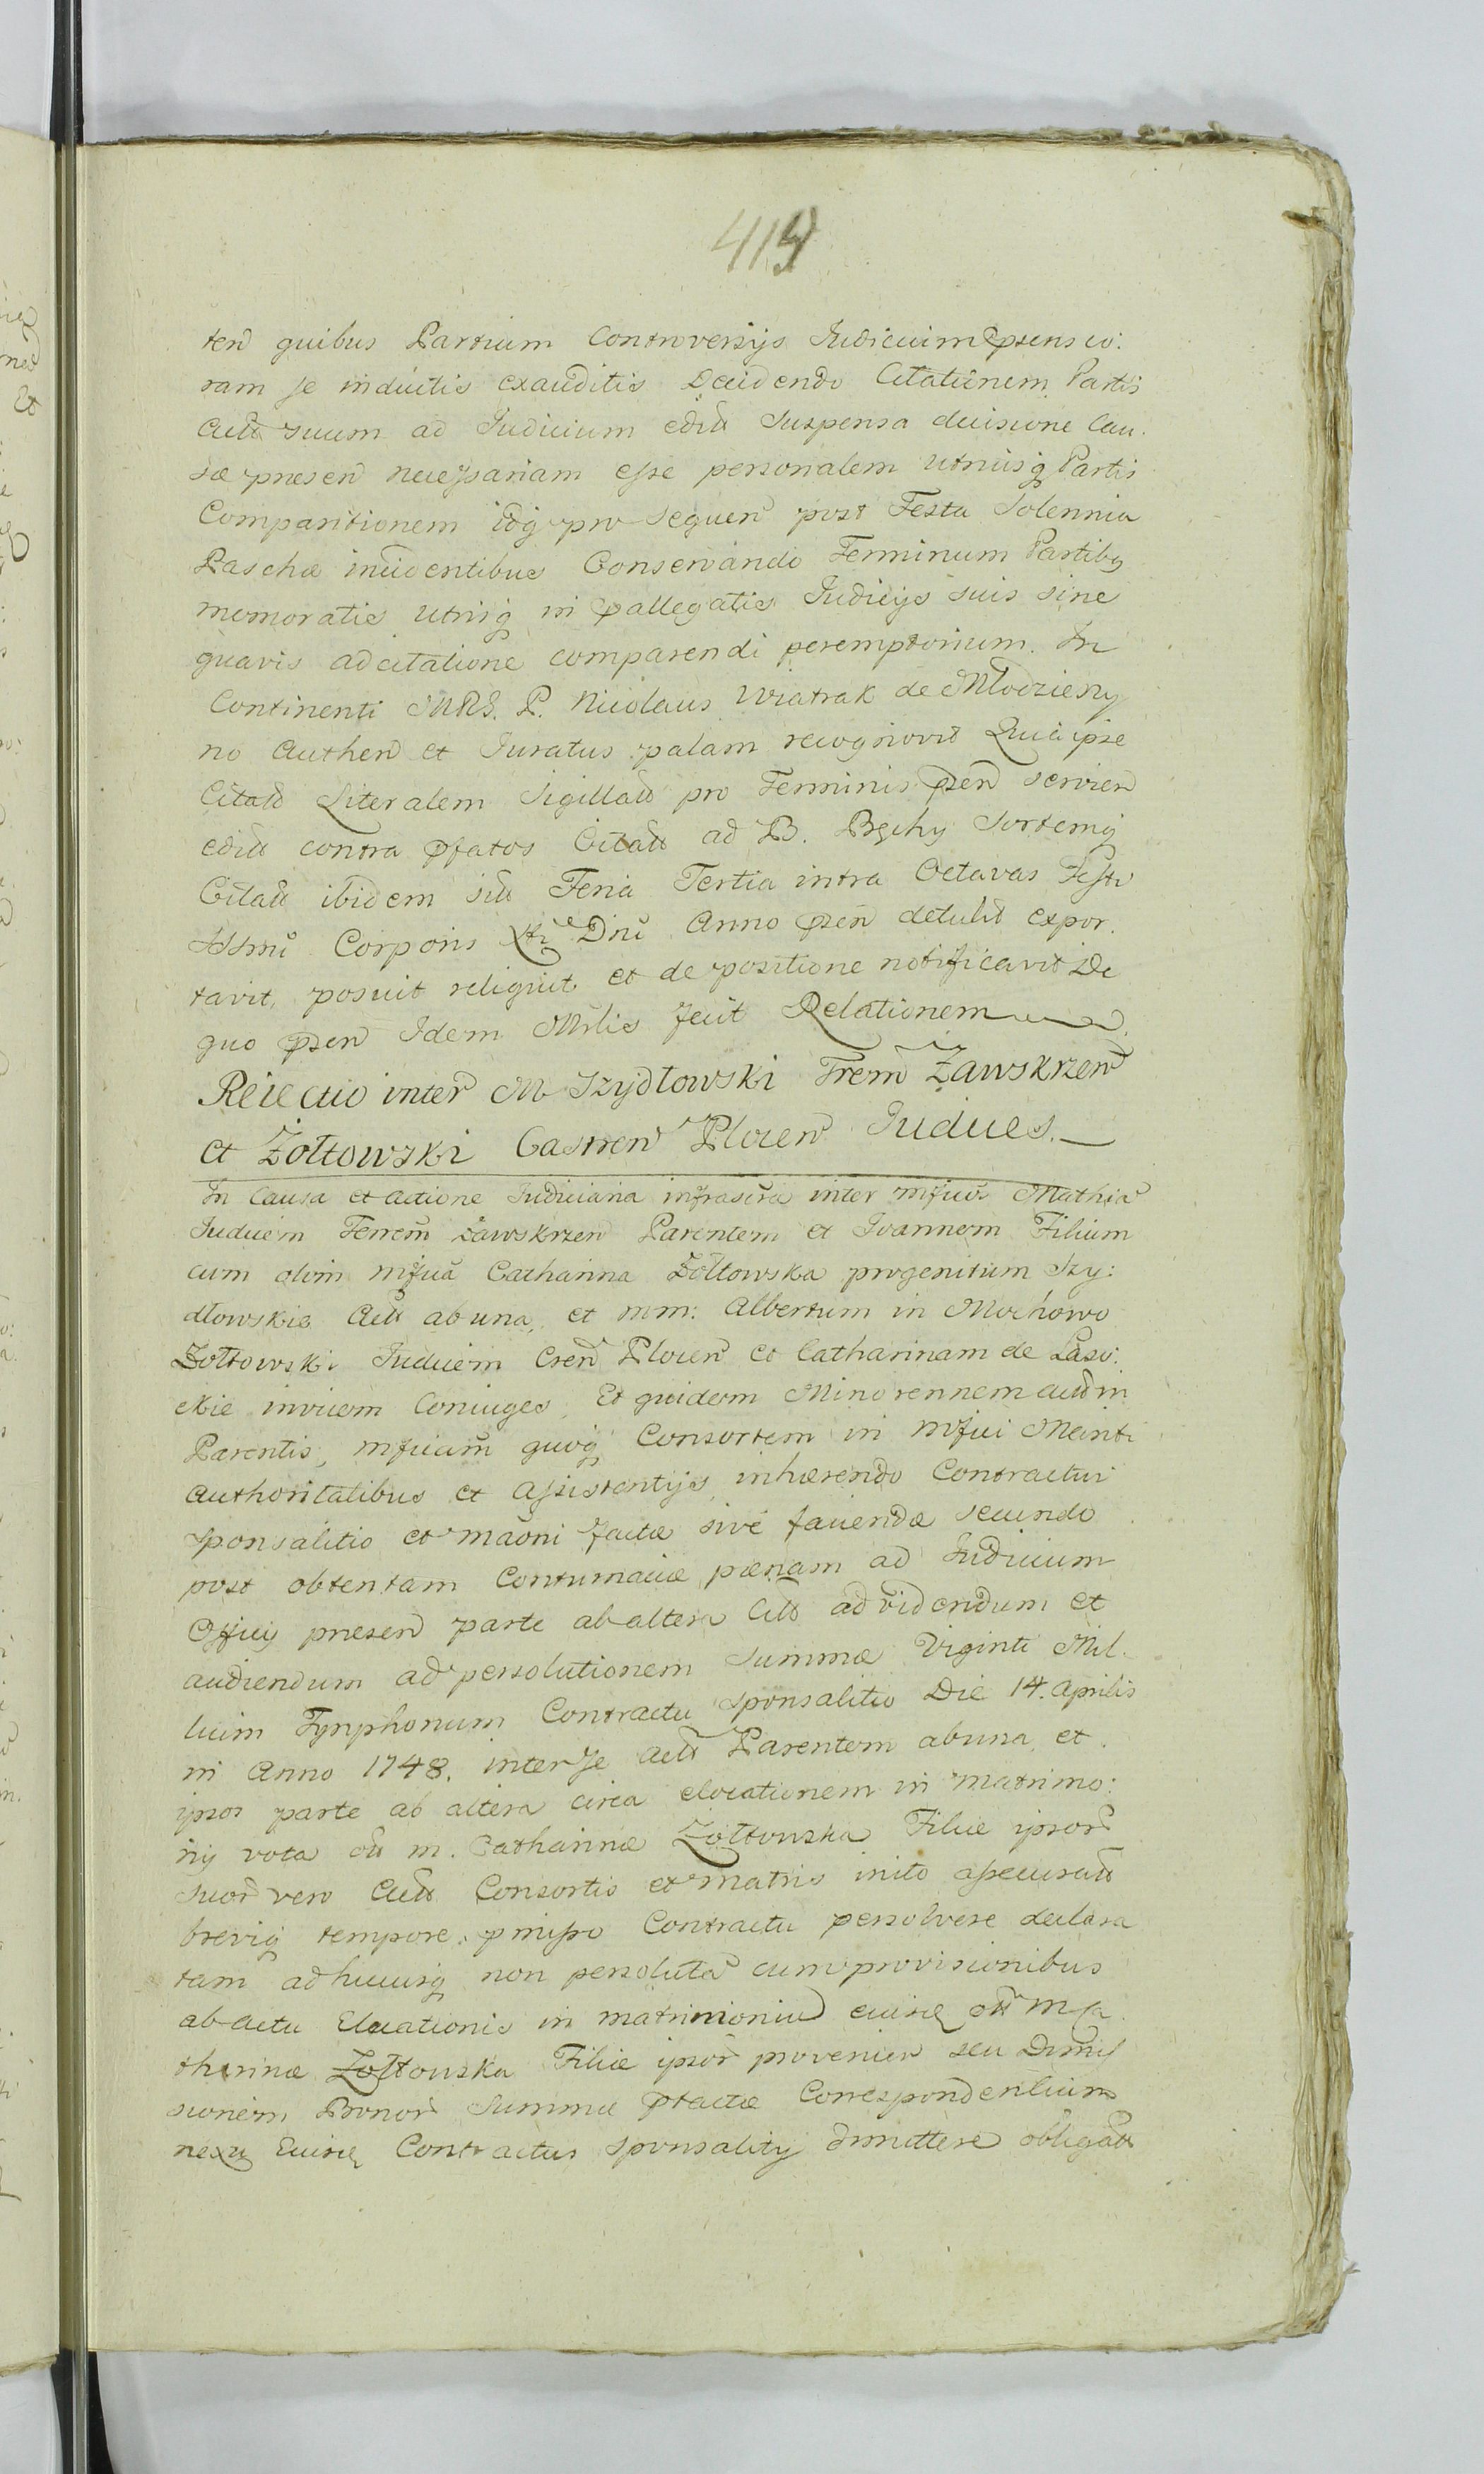 419
ten quibus Partium Controversijs Judicium psens co:
ram se inductis exauditis Decidendo Citationem Partis
Actt suum ad Judicium editt Suspensa decisione Cau
sæ presen necessariam esse personalem utriusq Partis
Comparitionem idq pro sequen post Festa Solennia
Paschæ incidentibus Conservando Terminum Partibq
memoratis utriq in pallegatis Judicijs suis sine
quavis adcitatione comparendi peremptorium. In
Continenti MRS. P. Nicolaus Wiatrak de Młodzieny
no Authen et Juratus palam recognovit Quia ipse
Citatt Literalem Sigillatt pro Terminis psen servien
editt contra pfatos Citatt ad B. Bęchy Sortemq
Citatt ibidem sitt Feria Tertia intra Octavas Festi
SSmi Corporis Xti Dni Anno psen detulit expor.
tavit, posuit reliquit et de positione notificavit De
quo psen Idem Mrlis fecit Relationem
Reiectio inter M Szydłowski Trem Zawskrzen
et Żołtowski Castren Plocen Judices.
In Causa et actione Judiciaria infrascra inter mfcos Mathia
Judicem Terrem Zawskrzen Parentem et Joannem Filium
cum olim mfca Catharina Żołtowska progenitum Szy:
dłowskie Actt ab una, et mm: Albertum in Mochowo
Żołtowski Judicem Cren Plocen et Catharinam de Laso:
ckie invicem Coniuges, Et quidem Minorennem actt in
Parentis, mficam quoq Consortem in mfici Mariti
authoritatibus et assistentijs, inhærendo Contractui
sponsalitio et maoni factæ sive faciendæ secundo
post obtentam Contumaciæ pænam ad Judicium
Officij presen parte ab altera Citt ad videndum et
audiendum ad persolutionem Summæ Viginti Mil
lium Tynphonum Contractu sponsalitio Die 14. Aprilis
in Anno 1748. inter se Actt Parentem ab una, et
ipsos parte ab altera circa elocationem in matrimo:
nij vota ott m. Catharinæ Żołtowska Filiæ ipsor
suor vero Actt Consortis et matris inito assecuratt
breviq tempore pmisso Contractu persolvere declara
tam adhucusq non persoluta cum provisionibus
ab actu Elocationis in matrimoniu eiusq ott m Ca
tharinæ Żołtowska Filiæ ipsor provenien seu Dimis
sionem Bonor Summæ ptactæ Correspondentium
nexu Eiusq Contractus sponsalitij dimittere obligatt